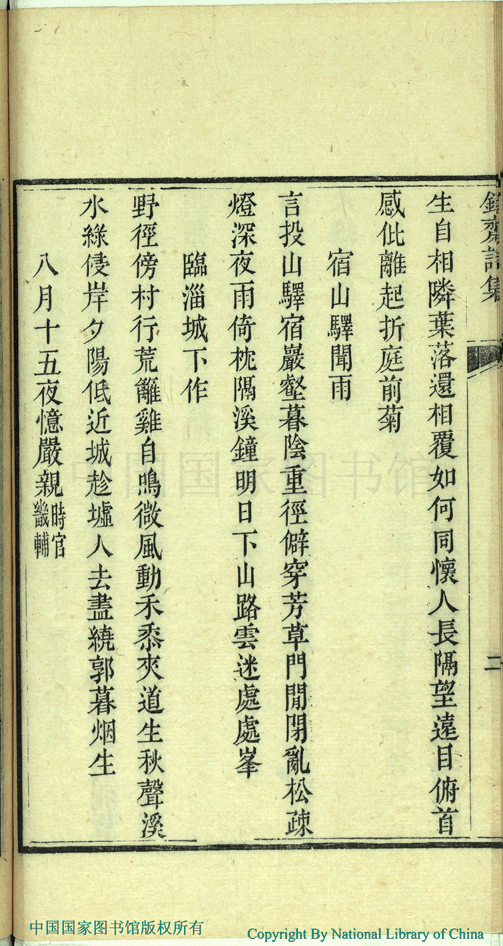 生自相隣葉落還相覆如何同懷人長隔望遠目俯首
感仳離起折庭前菊
宿山驛聞雨
言投山驛宿巖壑暮陰重徑僻穿芳草門閒閉亂松疎
燈深夜雨倚枕隔溪鐘明日下山路雲迷處處峯
臨淄城下作
野徑傍村行荒籬雞自鳴微風動禾黍夾道生秋聲溪
水綠侵岸夕陽低近城趁墟人去盡繞郭暮烟生
八月十五夜憶嚴親時官畿輔
二
中国国家图书馆
中国国家图书馆版权所有
Copyright By National Library of China